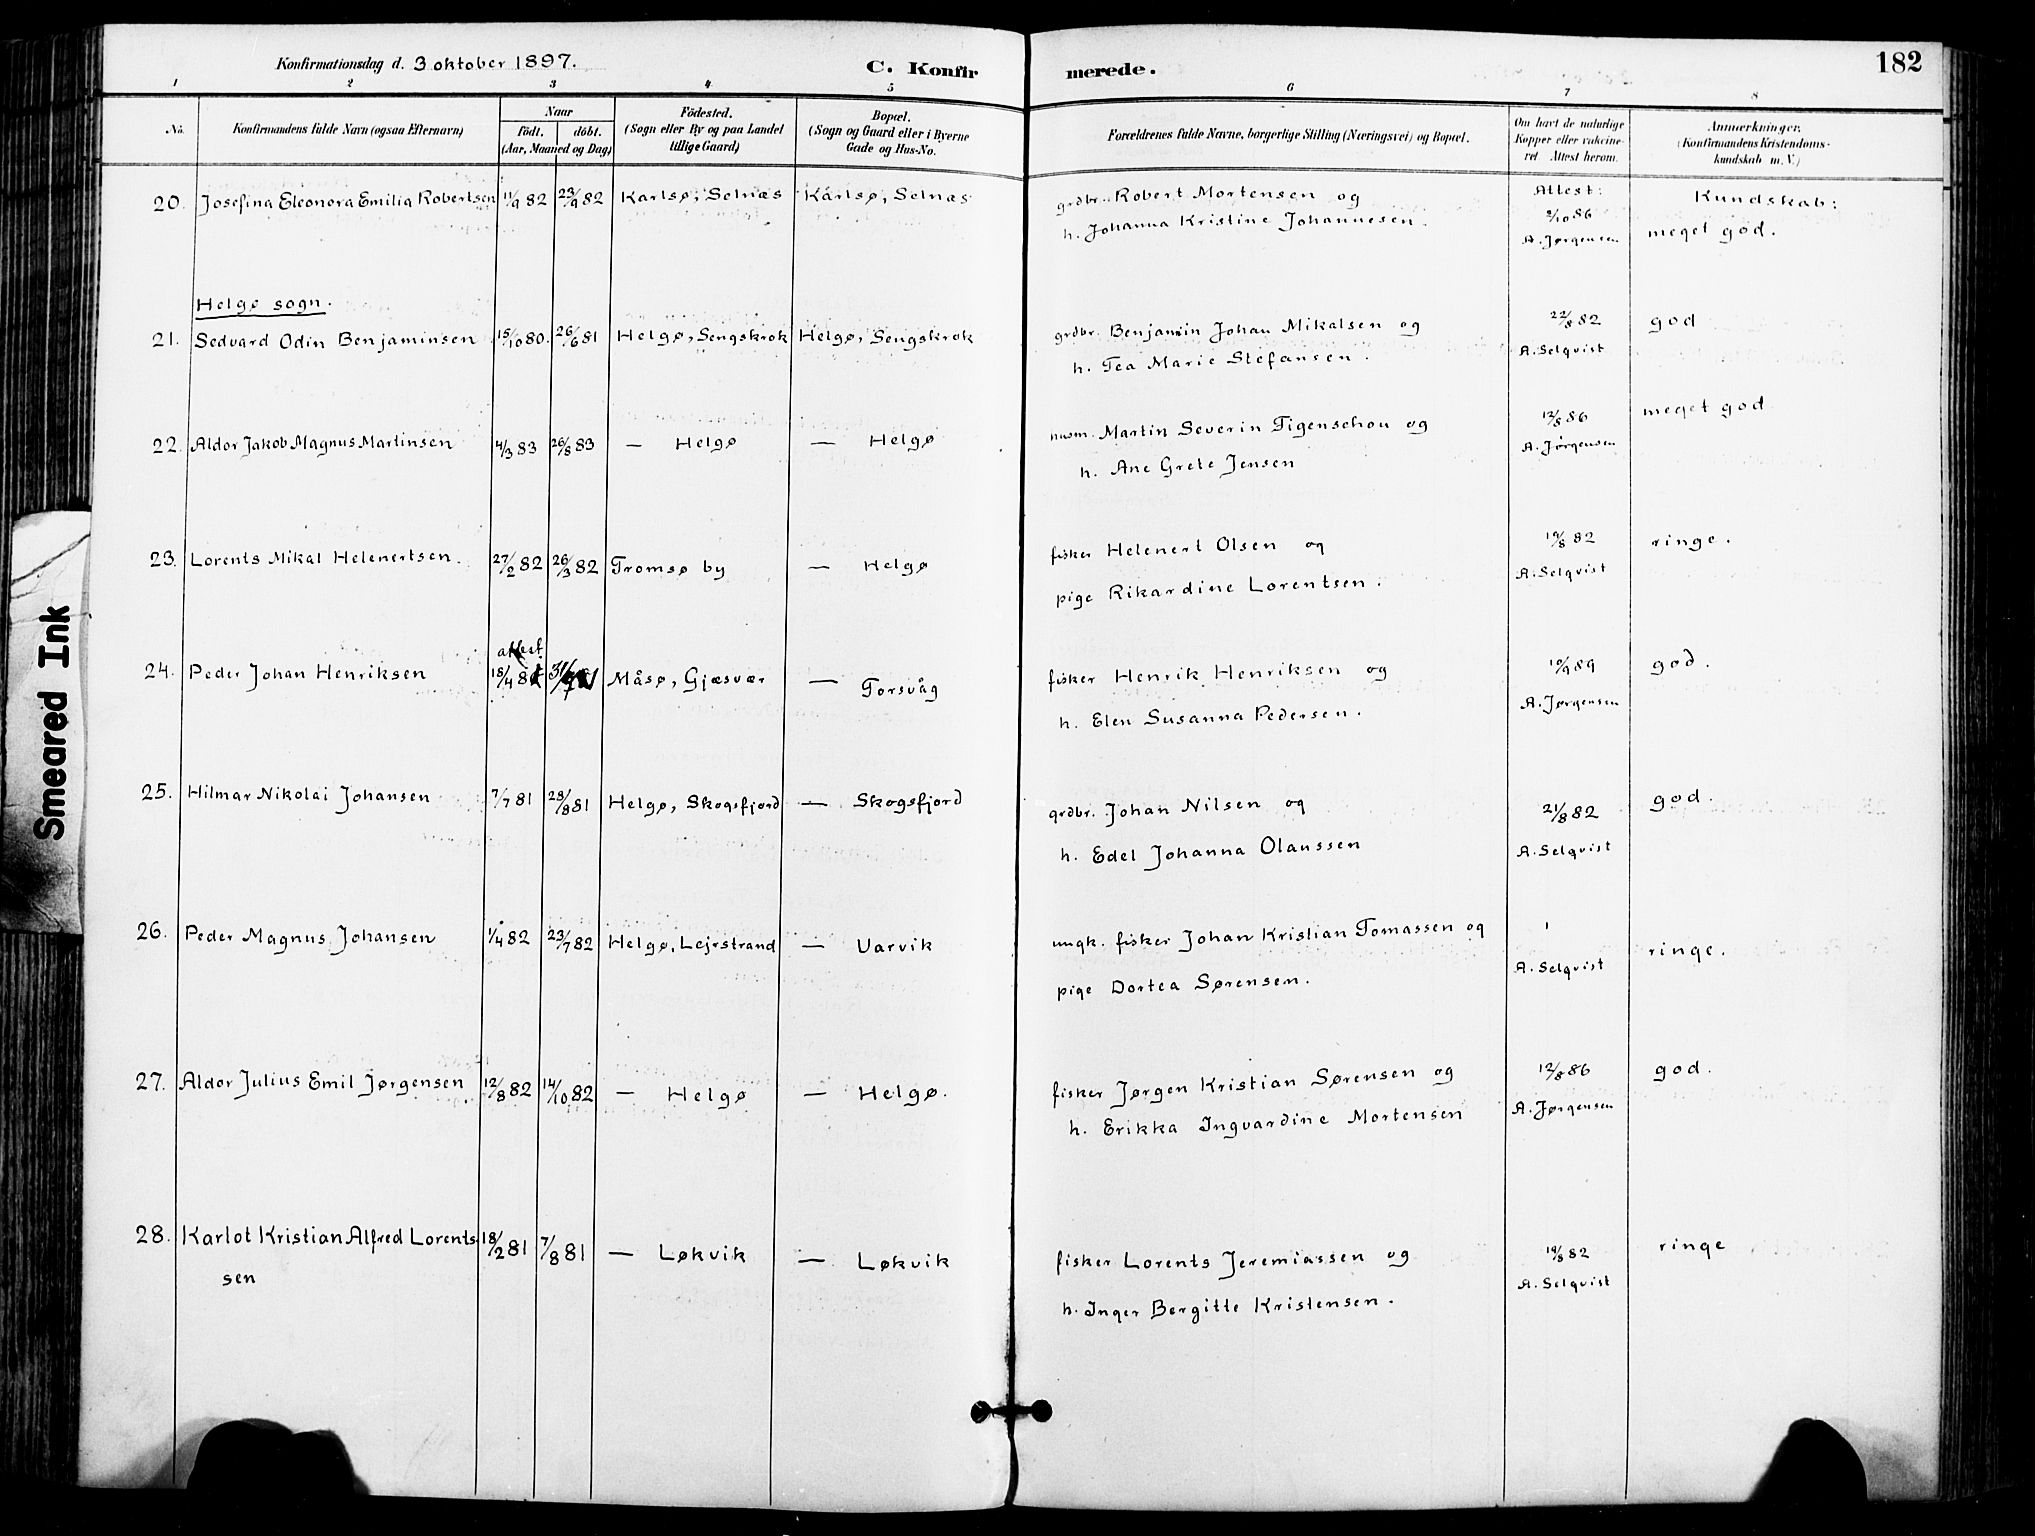 Konfirmationsdag d. 3 oktober 1897. C. Konfir merede. 182
1 2 3 4 5 6 7 8
No. Konfirmandens fulde Navn (ogsaa Efternavn) Naar født. døbt. (Aar, Maaned og Dag) Födested. (Sogn eller By og paa Landet tillige Gaard) Bopæl. (Sogn og Gaard eller i Byerne Gade og Hus-No. Forældrenes fulde Navne, borgerlige Stilling (Næringsvei) og Bopæl. Om havt de naturlige Kopper eller vakcineret. Attest herom. Anmærkninger. (Konfirmandens Kristendomskundskab m. V.)
20. Josefina Eleonora Emilia Robertsen 11/9 82 23/9 82 Karlsø, Selnæs Karlsø, Selnæs grdbr. Robert Mortensen og Attest: Kundskab:
h. Johanna Kristine Johannesen. 2/10 86 A. Jørgensen meget god.
Helgø sogn.
21. Sedvard Odin Benjaminsen 15/10 80. 26/6 81 Helgø, Sengskrok Helgø, Sengskrok grdbr. Benjamin Johan Mikalsen og 22/8 82 god
h. Tea Marie Stefansen. A. Selqvist
22. Aldor Jakob Magnus Martinsen 4/3 83 26/8 83 — Helgø — Helgø husm. Martin Severin Figenschou og 12/8 86 meget god
h. Ane Grete Jensen A. Jørgensen
23. Lorents Mikal Helenertsen. 27/2 82 26/3 82 Tromsø by — Helgø fisker Helenert Olsen og 19/8 82 ringe.
pige Rikardine Lorentsen. A. Selqvist
attest
24. Peder Johan Henriksen 18/4 Måsø, Gjæsvær — Torsvåg fisker Henrik Henriksen og 10/9 89 god.
h. Elen Susanna Pedersen. A. Jørgensen
25. Hilmar Nikolai Johansen 7/7 81 28/8 81 Helgø, Skogsfjord — Skogsfjord grdbr. Johan Nilsen og 21/8 82 god.
h. Edel Johanna Olaussen A. Selqvist
26. Peder Magnus Johansen 1/4 82 23/7 82 Helgø, Lejrstrand — Varvik ungk. fisker Johan Kristian Tomassen og ringe.
pige Dortea Sørensen. A. Selqvist
27. Aldor Julius Emil Jørgensen 12/8 82 14/10 82 — Helgø — Helgø. fisker Jørgen Kristian Sørensen og 12/8 86 god.
h. Erikka Ingvardine Mortensen A. Jørgensen
28. Karlot Kristian Alfred Lorents- 18/2 81 7/8 81 — Løkvik — Løkvik fisker Lorents Jeremiassen og 19/8 82 ringe
sen h. Inger Bergitte Kristensen. A. Selqvist
Smeared Ink